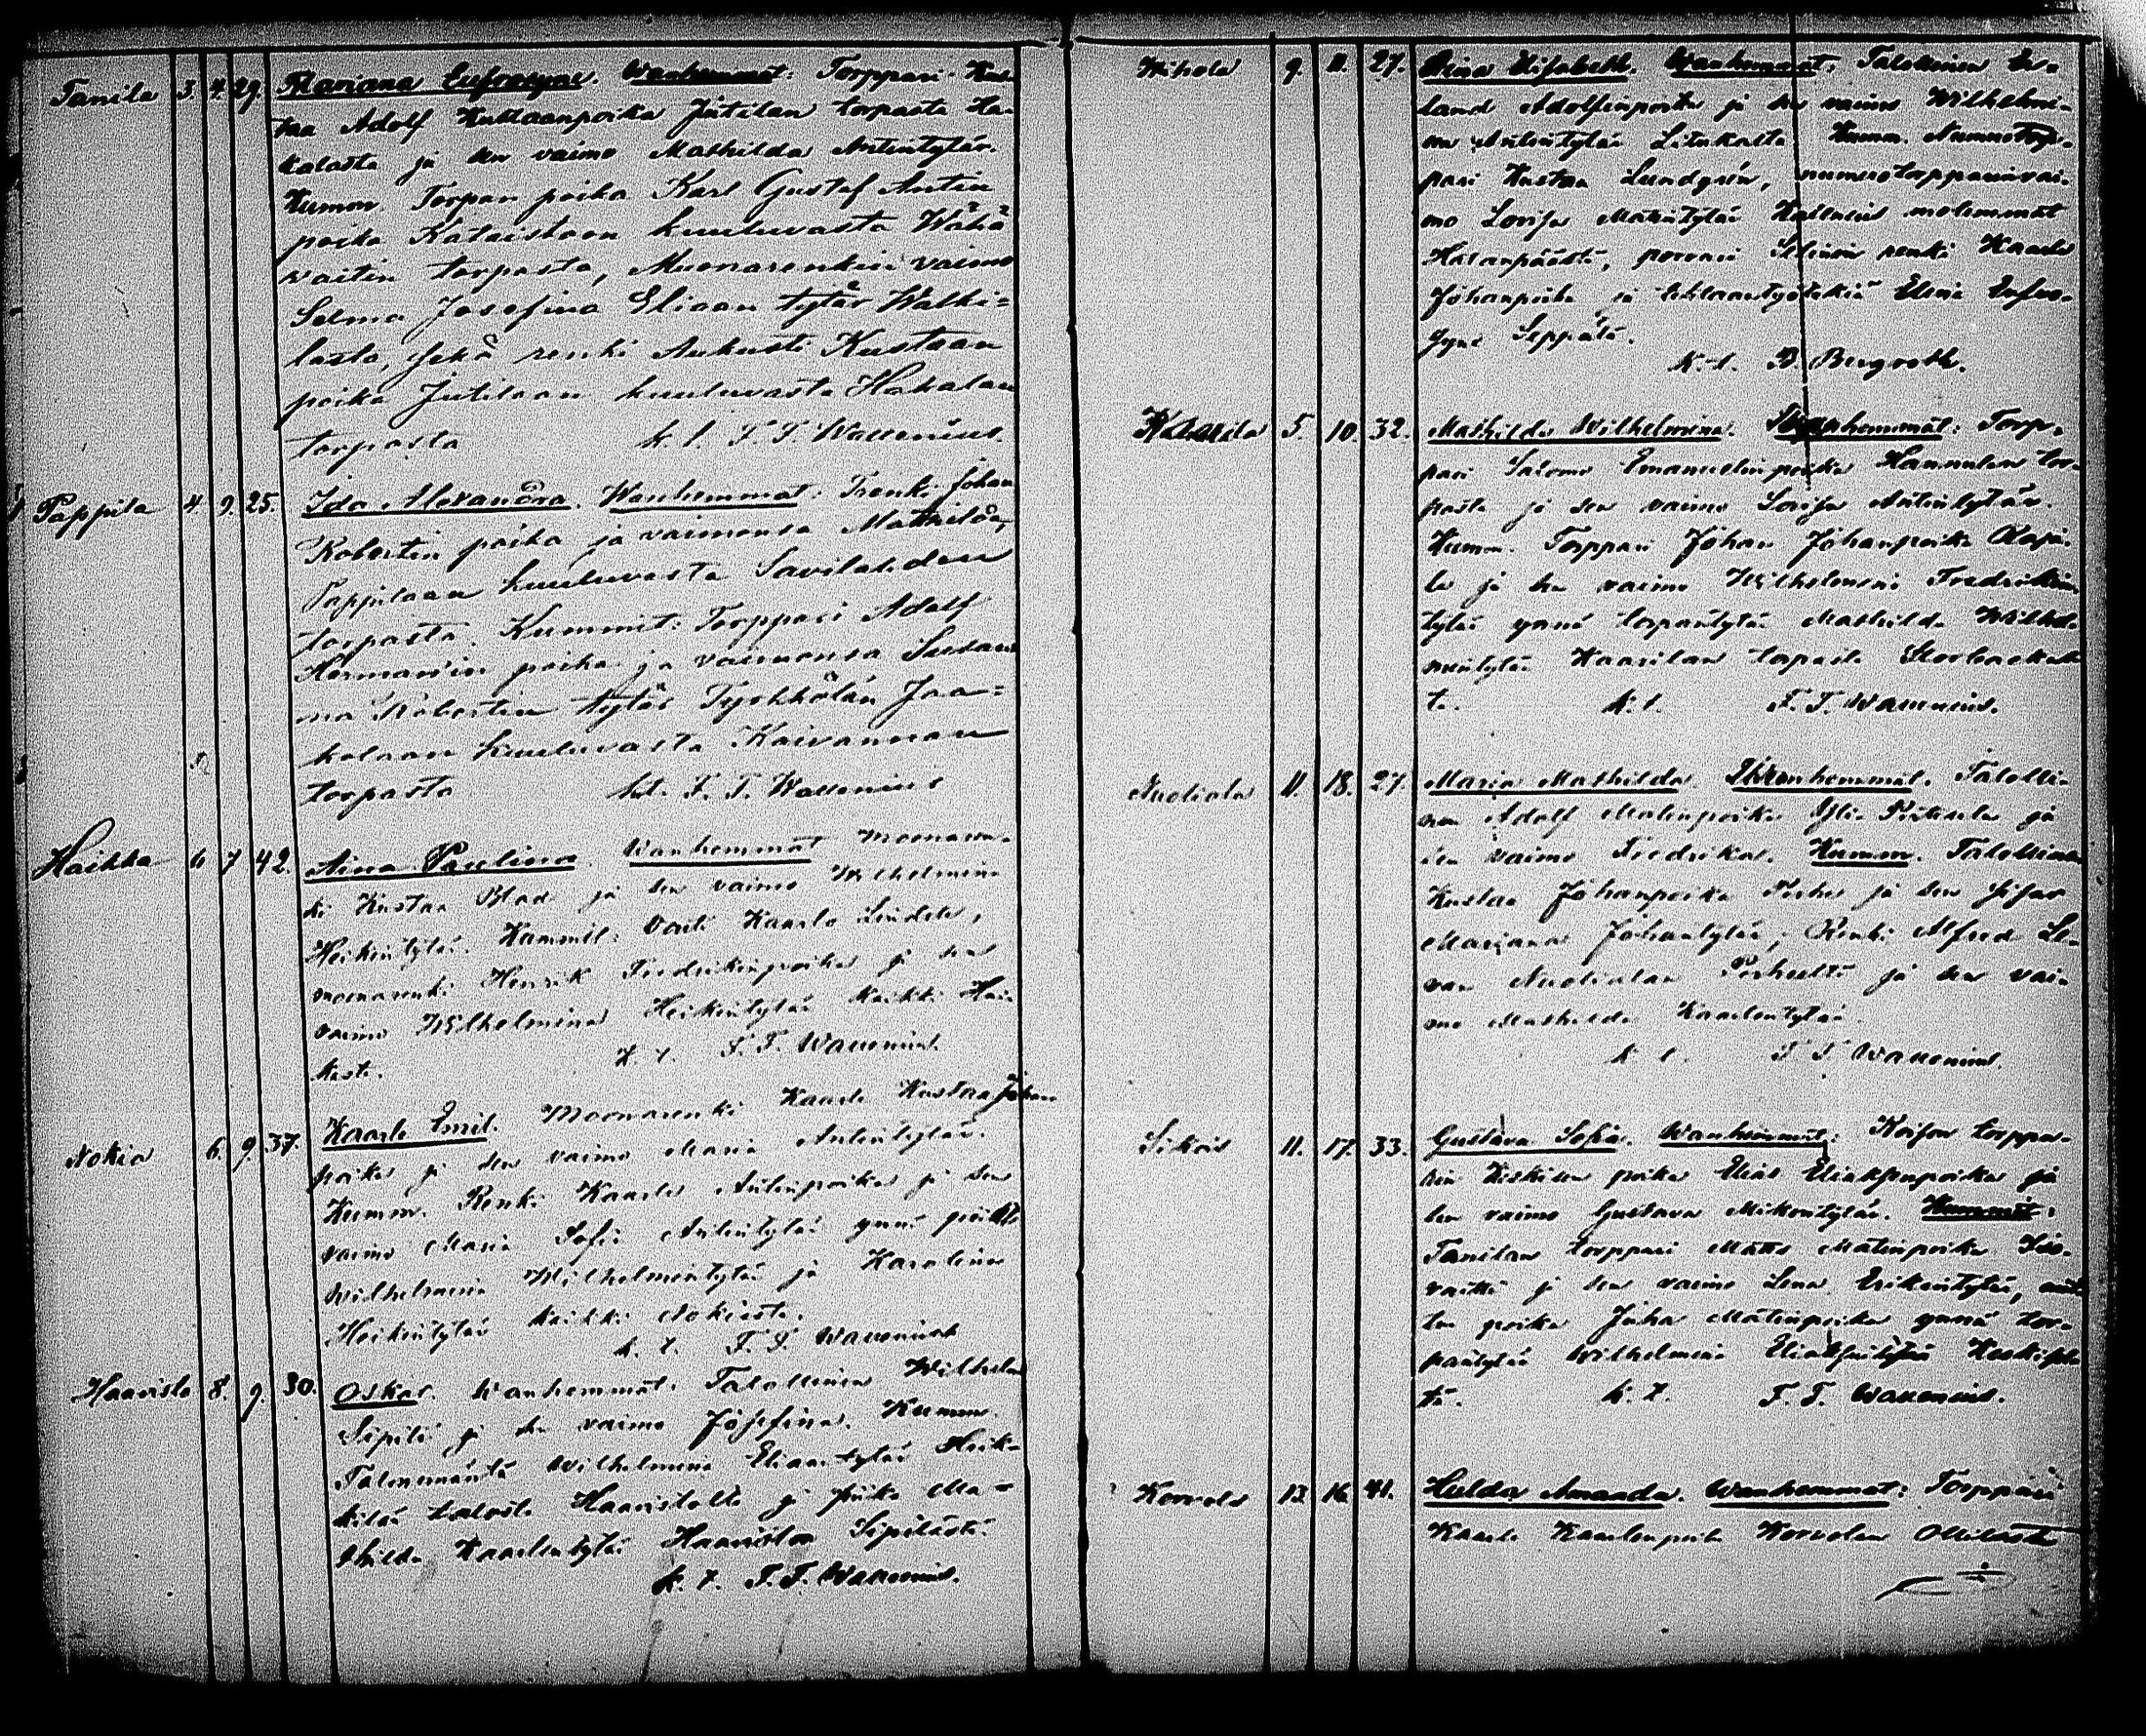 Tanila 3. 4. 29. Mariana Eufrosyne. Wanhemmat: Torppari Kus-
taa Adolf Kustaanpoika Jutilan torpasta Ha-
kalasta ja sen vaimo Mathilda Antintytär.
Kumm. Torpan poika Karl Gustaf Antin
poika Kataistoon kuuluvasta Wähä
vaitin torpasta, Muonarenkin vaimo
Selma Josefina Eliaan tytär Walki=
lasta, sekä renki Aukusti Kustaan
poika Jutilaan kuuluvasta Hakalan
torpasta k. t. F. F. Wallenius.
Pappila 4 9. 25. Ida Alexandra. Wanhemmat: Trenki Johan
Robertin poika ja vaimonsa Mathilda,
Pappilaan kuuluvasta Savilahden
torpasta. Kummit: Torppari Adolf
Hermannin poika ja vaimonsa Susan
na Robertin tytär Tyrkkölän Jaa=
kolaan kuuluvasta Kaivannan
torpasta k.t. F. F. Wallenius
Haikka 6 7 42. Aina Paulina. Wanhemmat Moonaren-
ki Kustaa Blad ja sen vaimo Wilhelmina
Heikintytär. Kummit: Vouti Kaarlo Lindels,
moonarenki Henrik Fredrikinpoika ja sen
vaimo Wilhelmina Heikintytär kaikki Hai-
kasta. k. t. F. F. Wallenius.
Nokia 6. 9. 37. Kaarle Emil. Moonarenki Kaarle Kustaa Johan
poika ja sen vaimo Maria Antintytär.
Kumm. Renki Kaarle Antinpoika ja sen
vaimo Maria Sofia Antintytär ynnä piiat
Wilhelmina Wilhelmintytär ja Karolina
Heikintytär kaikki Nokiasta.
k. t. F. F. Wallenius
Haavisto 8. 9. 30. Oskar. Wanhemmat: Talollinen Wilhelm
Sipilä ja sen vaimo Josefina. Kumm.
Talonemäntä Wilhelmina Eliaantytär Heik-
kilän talosta Haavistolta ja piika Ma=
thilda Kaarlentytär Haaviston Sipilästä.
k. t. F. F. Wallenius.
Wihola 9. 11. 27. Elisabeth. Wanhemmat: Talollinen
Adolfinpoika ja sen vaimo Wilhelmi-
na Antintytär Liukalta Kumm. Numerotorp-
pari Kustaa Lundgrén, numerotorpparinvai-
mo Lovisa Matintytär molemmat
porvari renki Kaarle
Johanpoika ja tehtaantyötekiä Elina Eufro-
syne Seppälä.
k. t. B. Bergroth.
Kaarila 5. 10. 32. Mathilda Wilhelmina. Wanhemmat: Torp-
pari Salomo Emanuelinpoika Hannulan tor-
pasta ja sen vaimo Lovisa Antintytär.
Kumm. Torppari Johan Johanpoika
ja sen vaimo Wilhelmina Fredrikin
tytär ynnä torpantytär Mathilda Wilhel-
mintytär Kaarilan torpasta
k. t. F. F. Wallenius.
Nuoliala 11. 18. 27. Maria Mathilda. Wanhemmat. Talolli-
nen Adolf Matinpoika Yli- ja
sen vaimo Fredrika. Kumm. Talollinen
Kustaa Johanpoika ja sen sisar
Mariana Johantytär, Renki Alfred
Nuolialan ja sen vai-
mo Mathilda Kaarlentytär
k. t. F. F. Wallenius.
Sikois 11. 17. 33. Gustava Sofia. Wanhemmat: torppa-
rin poika Elias Eliaksenpoika ja
sen vaimo Gustava Mikontytär. Kummit:
Tanilan torppari Matts Matinpoika
ja sen vaimo Lena Erikintytär,
poika Juha Matinpoika ynnä tor-
pantytär Wilhelmina Eliaksentytär
tä. k. t. F. F. Wallenius.
Korvola 13. 16. 41. Hulda Amanda. Wanhemmat: Torppari
Kaarle Kaarlenpoika Korvolan Ollilasta